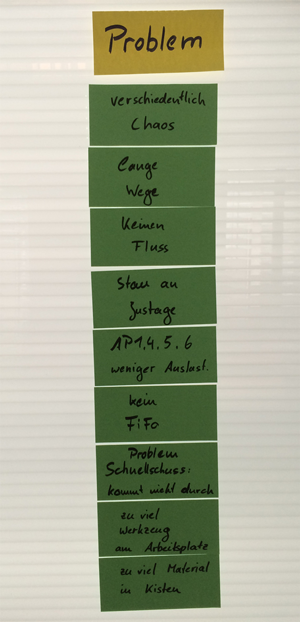 Problem
verschiedentlich
Chaos
Lange
Wege
Keinen
Fluss
Stau an
Zustage
AP1.4.5.6
weniger Auslast.
kein
FiFo
Problem
Schnellschuss:
kommt nicht durch
zu viel
Werkzeug
am Arbeitsplatz
zu viel Material
in Kisten